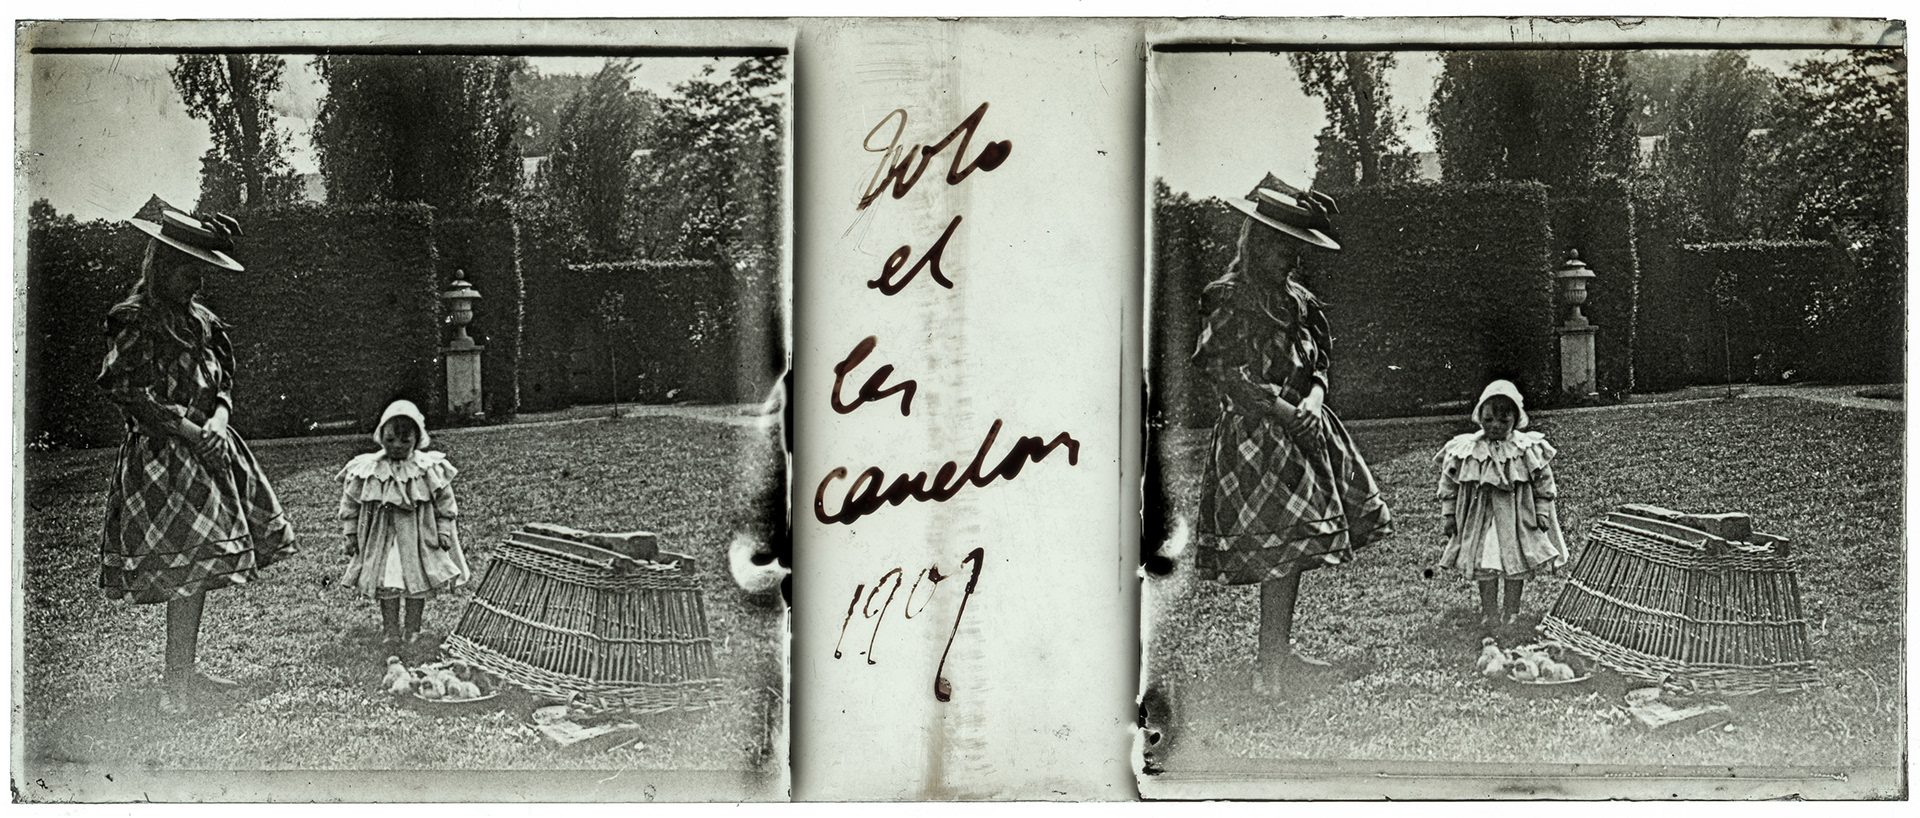 et
les
canetons
1907